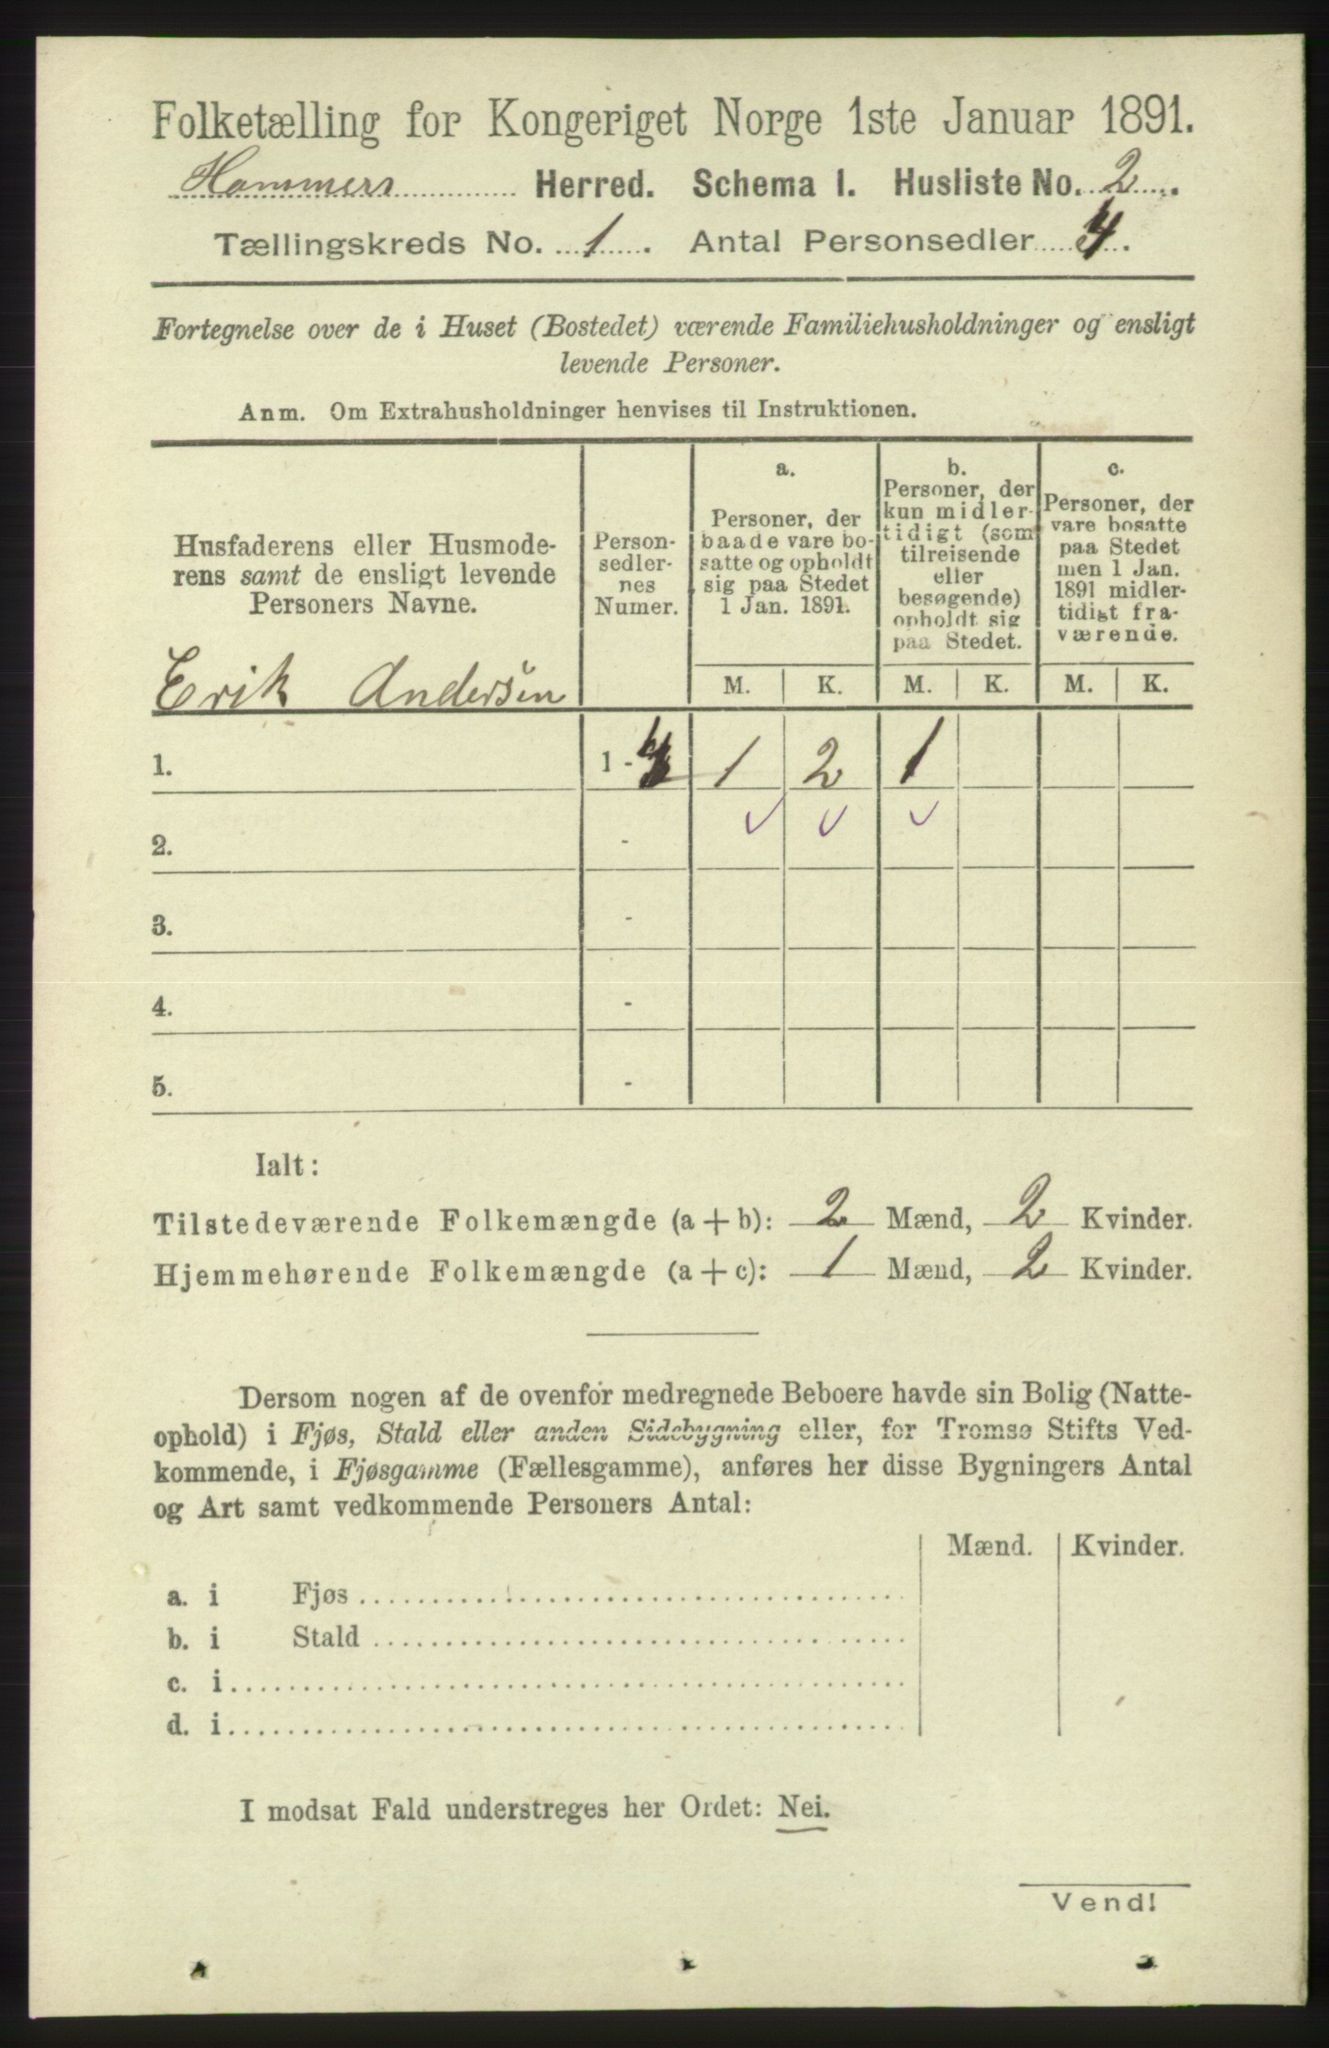 Folketælling for Kongeriget Norge 1ste Januar 1891.
Hammers Herred. Schema I. Husliste No. 2.
Tællingskreds No. 1. Antal Personsedler 4.
Fortegnelse over de i Huset (Bostedet) værende Familiehusholdninger og ensligt
levende Personer.
Anm. Om Extrahusholdninger henvises til Instruktionen.
Husfaderens eller Husmode-
rens samt de ensligt levende
Personers Navne.
Person-
sedler-
nes
Numer.
a.
Personer, der
baade vare bo-
satte og opholdt
sig paa Stedet
1 Jan. 1891.
b.
Personer, der
kun midler-
tidigt (som
tilreisende
eller
besøgende)
opholdt sig
paa Stedet.
c.
Personer, der
vare bosatte
paa Stedet
men 1 Jan.
1891 midler-
tidigt fra-
værende.
Erik Andersen
M. K. M. K. M. K.
1. 1 - 4 1 2 1
2. -
3. -
4. -
5. -
Ialt:
Tilstedeværende Folkemængde (a + b): 2 Mænd, 2 Kvinder.
Hjemmehørende Folkemængde (a + c): 1 Mænd, 2 Kvinder.
Dersom nogen af de ovenfor medregnede Beboere havde sin Bolig (Natte-
ophold) i Fjøs, Stald eller anden Sidebygning eller, for Tromsø Stifts Ved-
kommende, i Fjøsgamme (Fællesgamme), anføres her disse Bygningers Antal
og Art samt vedkommende Personers Antal:
Mænd. Kvinder.
a. i Fjøs
b. i Stald
c. i
d. i
I modsat Fald understreges her Ordet: Nei.
Vend!